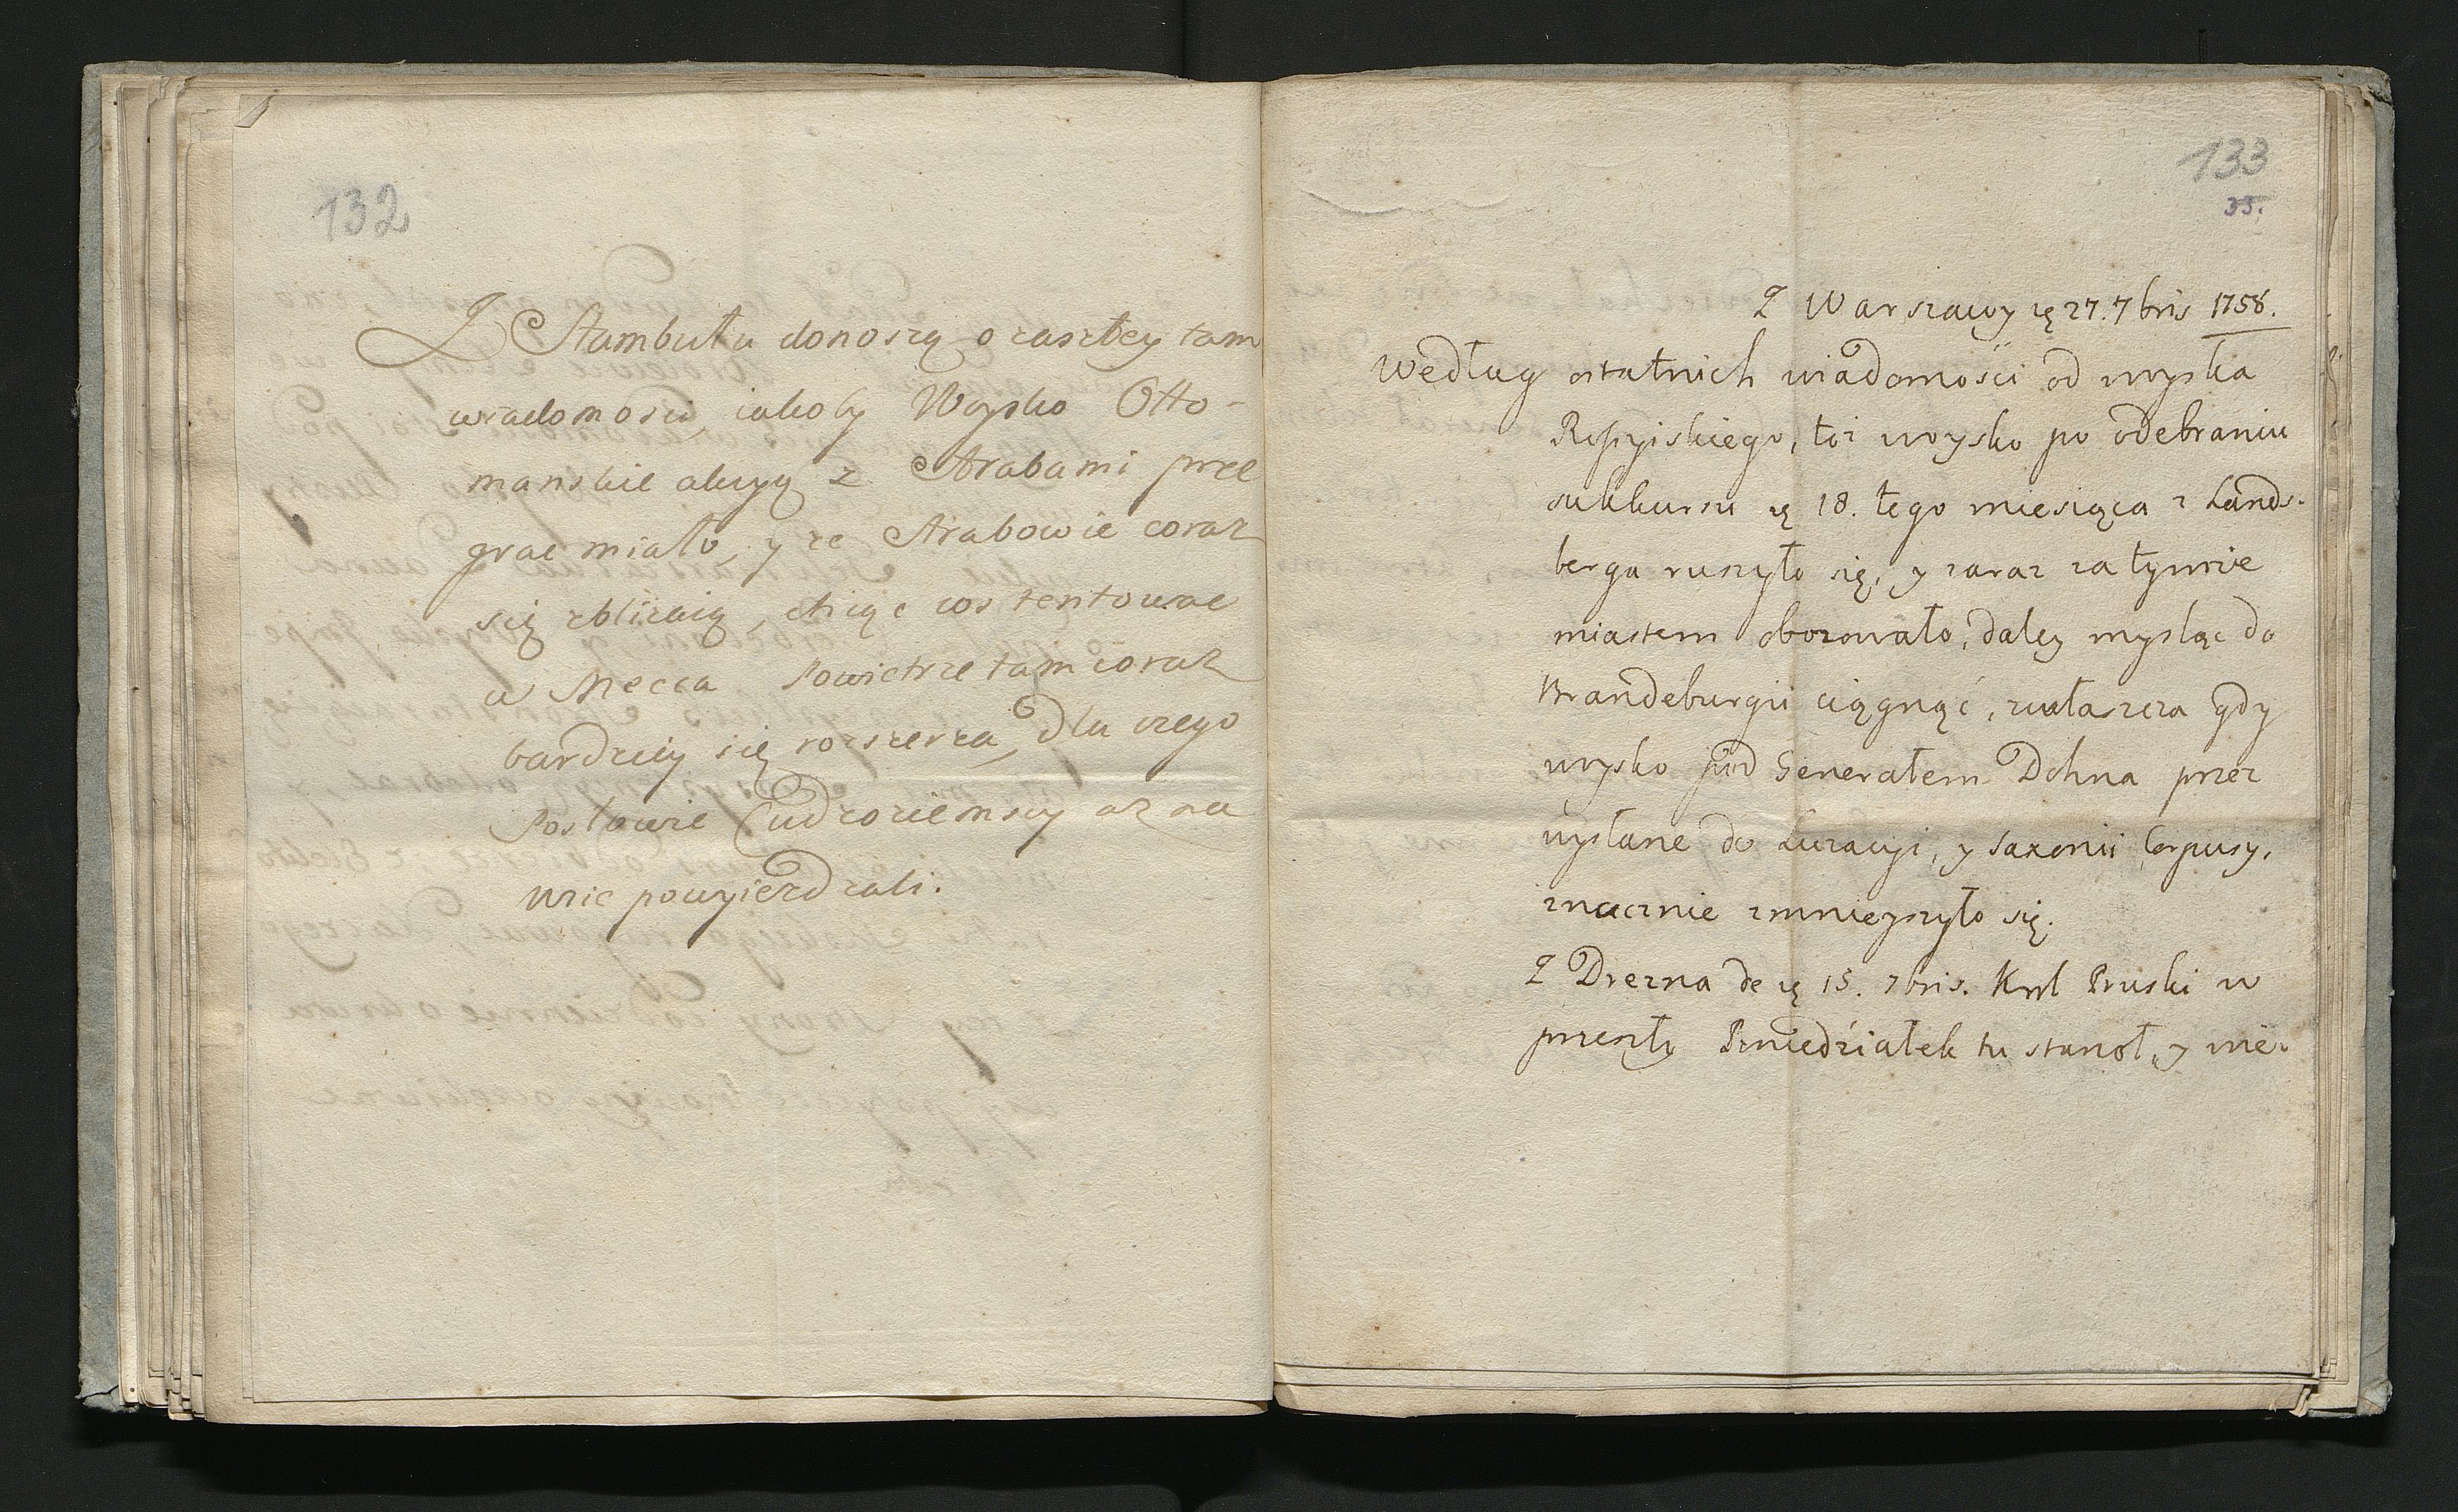 132
Z Stambułu donoszą o zaszłey tam
wiadomosci, iakoby Woysko Otto-
manskie akcyą z Arabami prze
grac miało, y ze Arabowie coraz
się zbliżaią, chcąc cos tentowac
w Mecca Powietrze tam coraz
bardziey się rozszerza, dla czego
Posłowie Cudzoziemscy az na
wsie powyiezdzali.
133
35.
Z Warszawy ię 27. 7bris 1758.
Według ostatnich wiadomości od woyska
Rossyiskiego, toż woysko po odebraniu
sukkursu ię 18. tego miesiąca z Lands-
berga ruszyło się, y zaraz za tymże
miastem obozowało, daley mysląc do
Brandeburgii ciągnąć, zwłaszcza gdy
woysko pod Generałem Dohna przez
wysłane do Luzacyi, y Saxonii Corpusy,
znacznie zmnieyszyło się.
Z Drezna de ię 15. 7bris. Krol Pruski w
przeszły Poniedziałek tu stanoł, y nie-